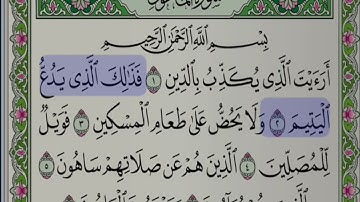 سورة الماعون
بِسْمِ ٱللَّهِ ٱلرَّحْمَٰنِ ٱلرَّحِيمِ
أَرَءَيْتَ ٱلَّذِى يُكَذِّبُ بِٱلدِّينِ ١ فَذَٰلِكَ ٱلَّذِى يَدُعُّ
ٱلْيَتِيمَ ٢ وَلَا يَحُضُّ عَلَىٰ طَعَامِ ٱلْمِسْكِينِ ٣ فَوَيْلٌ
لِّلْمُصَلِّينَ ٤ ٱلَّذِينَ هُمْ عَن صَلَاتِهِمْ سَاهُونَ ٥